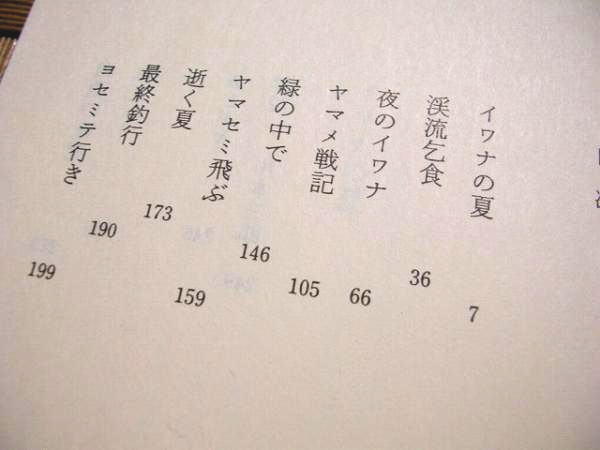 イワナの夏 7
渓流乞食 36
夜のイワナ 66
ヤマメ戦記 105
緑の中で 146
ヤマセミ飛ぶ 159
逝く夏 173
最終釣行 190
ヨセミテ行き 199